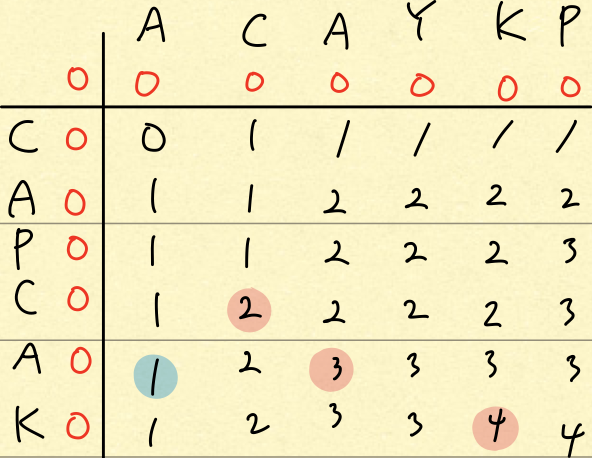 A C A Y K P
0 0 0 0 0 0 0
C 0 0 1 1 1 1 1
A 0 1 1 2 2 2 2
P 0 1 1 2 2 2 3
C 0 1 2 2 2 2 3
A 0 1 2 3 3 3 3
K 0 1 2 3 3 4 4